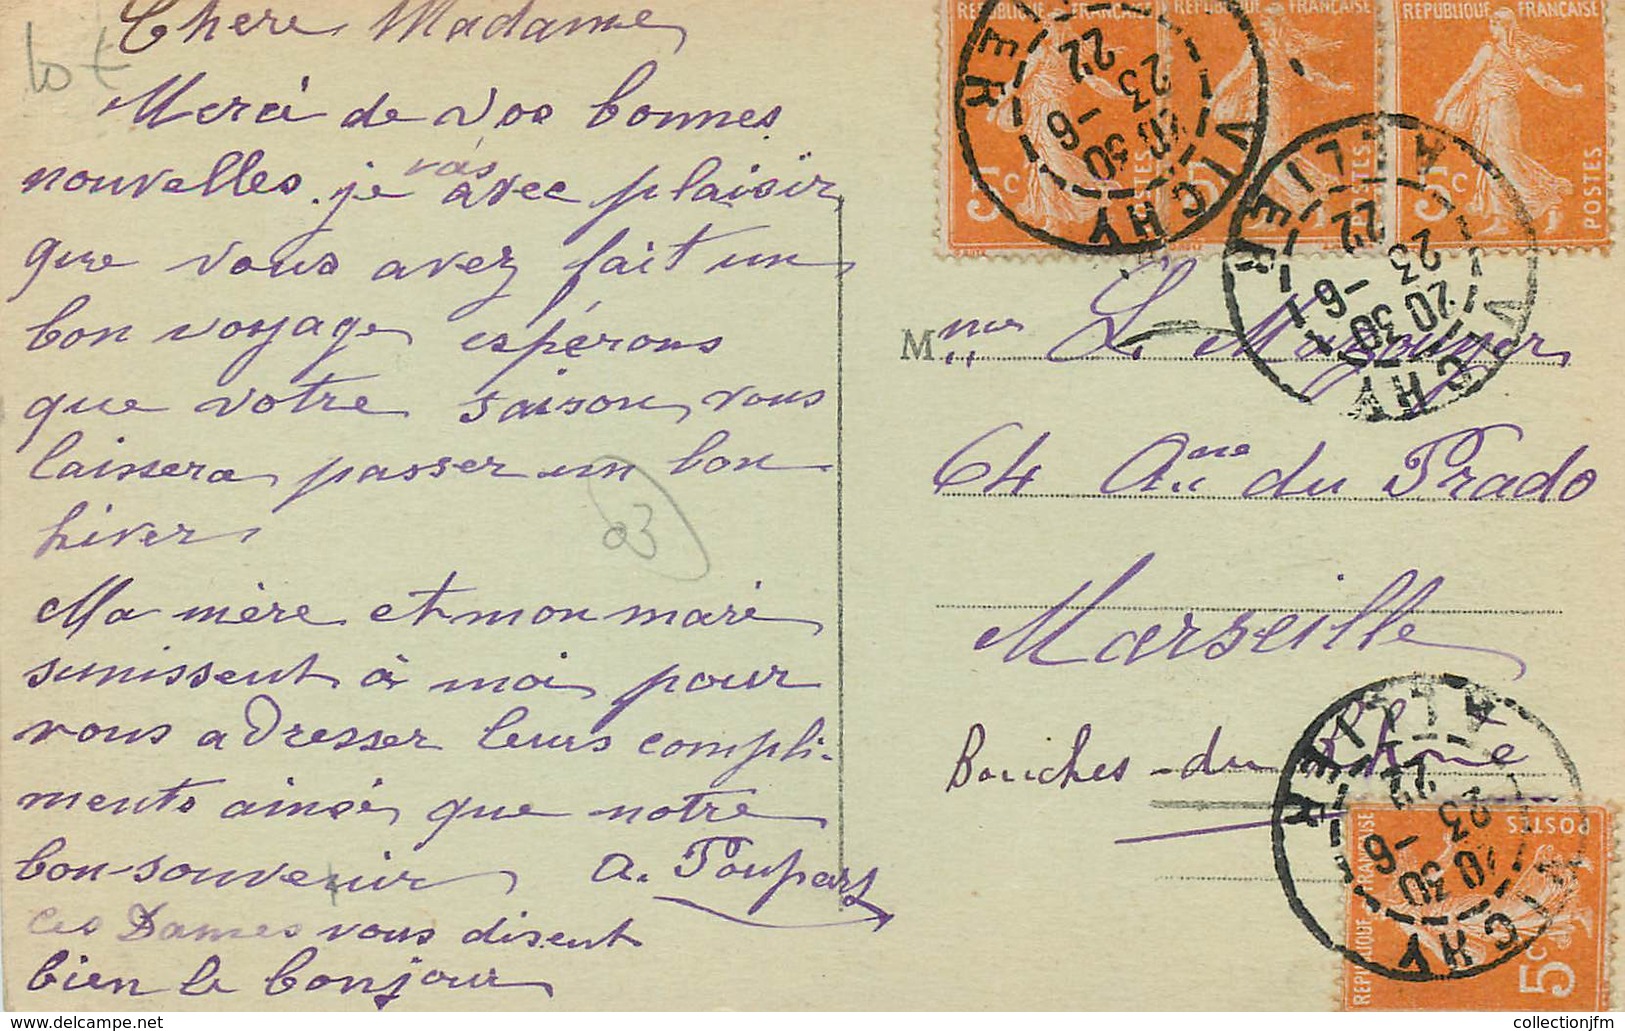 Chere Madame
Merci de vos bonnes
nouvelles. je vois avec plaisir
que vous avez fait un
bon voyage espérons
que votre saison vous
laissera passer un bon
hiver
Ma mère et mon mari
sunissent à moi pour
vous adresser leurs compli-
ments ainsi que notre
bon souvenir A. Poupart
ces Dames vous disent
bien le bonjour
lot
03
REPUBLIQUE FRANÇAISE
REPUBLIQUE FRANÇAISE
REPUBLIQUE FRANÇAISE
5c POSTES
POSTES
5c POSTES
VICHY ALLIER
20 30
23 -6
22
VICHY ALLIER
20 30
23 -6
22
Mme L. Mazouyer
64 Ave du Prado
Marseille
Bouches-du Rhône
VICHY ALLIER
20 30
23 -6
22
REPUBLIQUE FRANÇAISE
POSTES
5c
collectionjfm